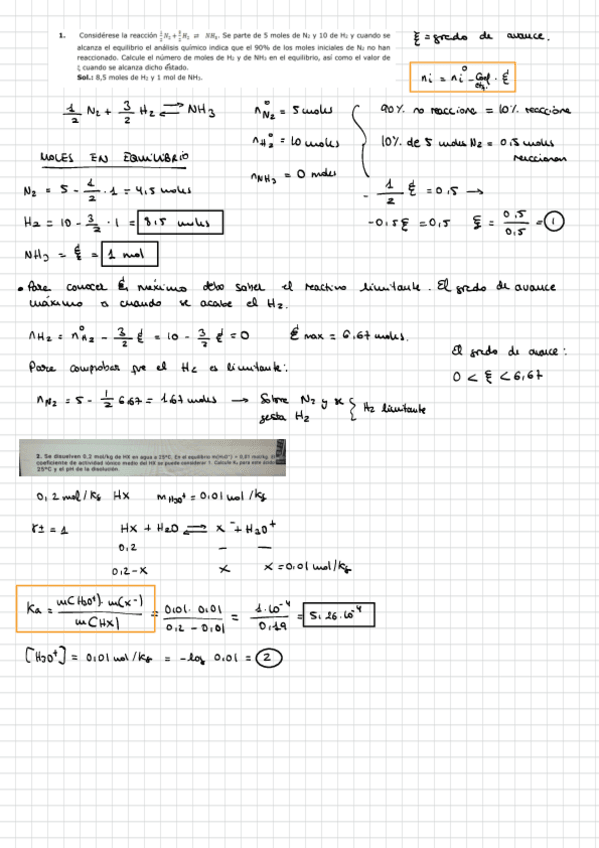 1. Considérese la reacción ½N₂ + 3/2 H₂ ⇌ NH₃. Se parte de 5 moles de N₂ y 10 de H₂ y cuando se
alcanza el equilibrio el análisis químico indica que el 90% de los moles iniciales de N₂ no han
reaccionado. Calcule el número de moles de H₂ y de NH₃ en el equilibrio, así como el valor de
ξ cuando se alcanza dicho estado.
Sol.: 8,5 moles de H₂ y 1 mol de NH₃.
ξ = grado de avance.
ni = ni⁰ - Coef · ξ
1/2 N₂ + 3/2 H₂ ⇌ NH₃
n⁰N₂ = 5 moles
n⁰H₂ = 10 moles
nNH₃ = 0 moles
90% no reacciona = 10% reacciona
10% de 5 moles N₂ = 0,5 moles
reaccionan
- 1/2 ξ = 0,5 →
-0,5 ξ = 0,5 ξ = 0,5/0,5 = 1
MOLES EN EQUILIBRIO
N₂ = 5 - 1/2 · 1 = 4,5 moles
H₂ = 10 - 3/2 · 1 = 8,5 moles
NH₃ = ξ = 1 mol
• Para conocer ξ máximo debo saber el reactivo limitante. El grado de avance
máximo es cuando se acabe el H₂.
nH₂ = n⁰H₂ - 3/2 ξ = 10 - 3/2 ξ = 0 ξ max = 6,67 moles.
Para comprobar que el H₂ es limitante:
nN₂ = 5 - 1/2 6,67 = 1,67 moles → Sobra N₂ y se
gasta H₂ } H₂ limitante
El grado de avance:
0 < ξ < 6,67
2. Se disuelven 0,2 mol/kg de HX en agua a 25°C. En el equilibrio m(H₃O⁺) = 0,01 mol/kg. El
coeficiente de actividad iónico medio del HX se puede considerar 1. Calcule Kₐ para este ácido
25°C y el pH de la disolución.
0,2 mol/kg HX mH₃O⁺ = 0,01 mol/kg
γ± = 1 HX + H₂O ⇌ X⁻ + H₃O⁺
0,2 — —
0,2-x x x = 0,01 mol/kg
Ka = m(H₃O⁺) · m(X⁻) / m(HX) = 0,01 · 0,01 / 0,2 - 0,01 = 1·10⁻⁴ / 0,19 = 5,26·10⁻⁴
[H₃O⁺] = 0,01 mol/kg = -log 0,01 = 2